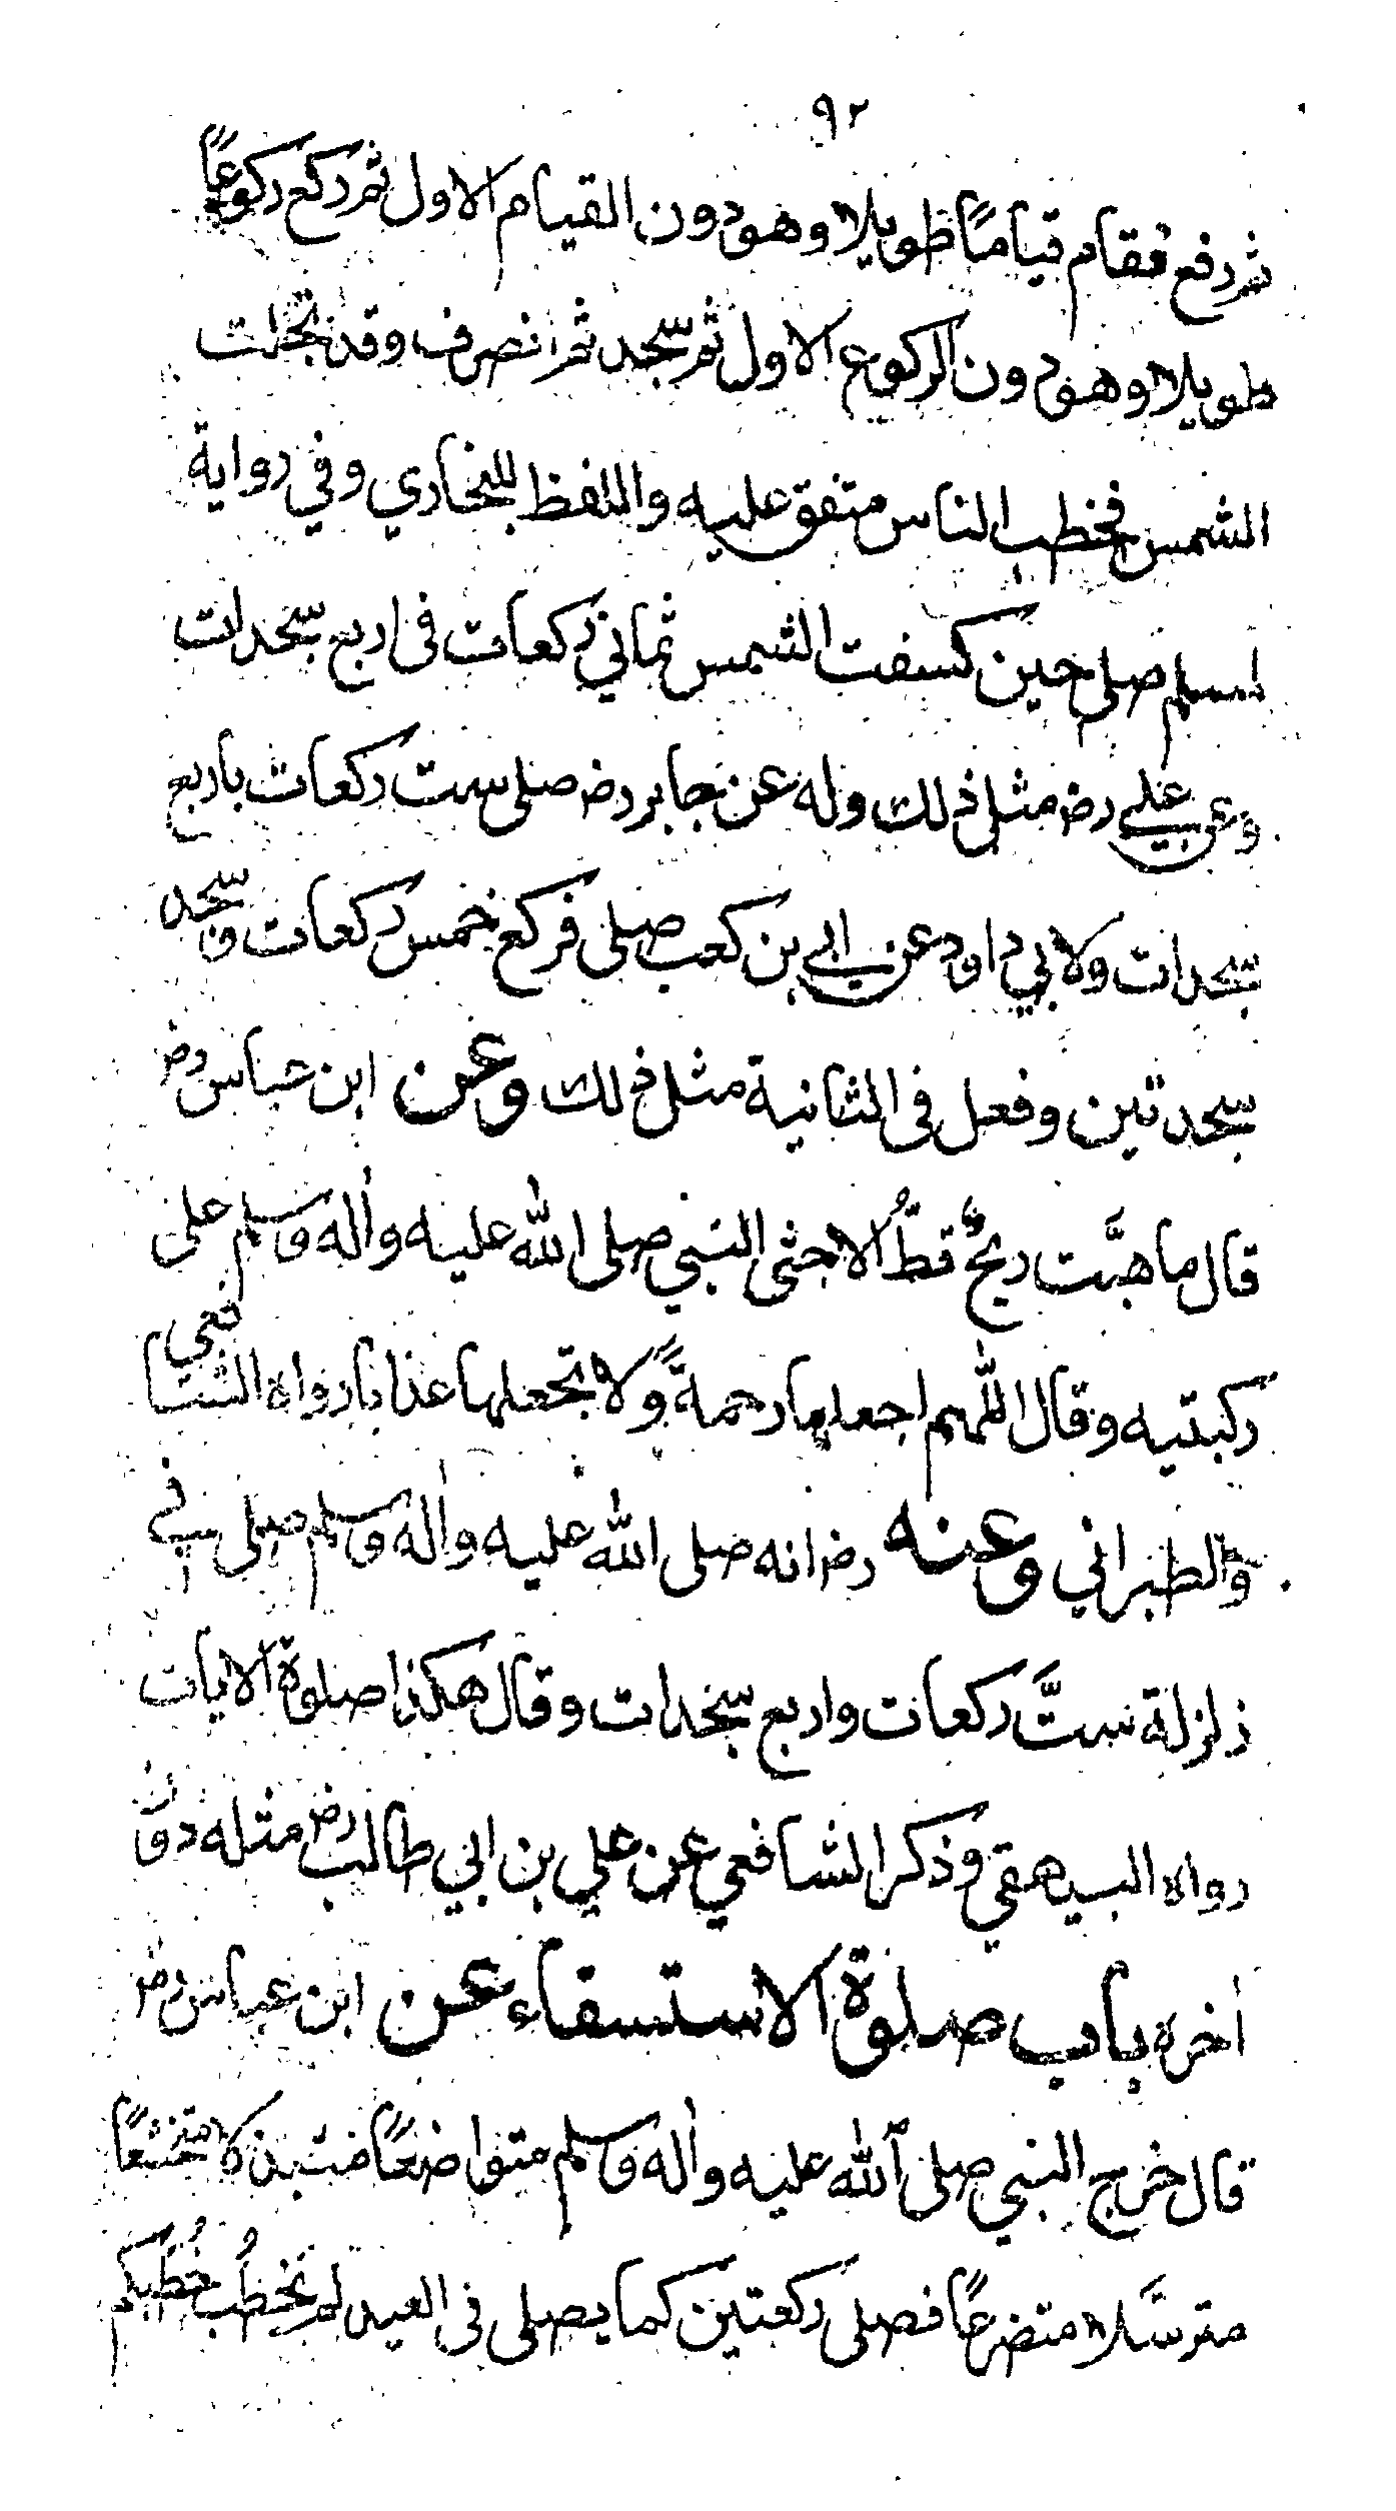 ٩٢
ثم رفع فقام قيامًا طويلا وهو دون القيام الاول ثم ركع ركوعًا
طويلا وهو دون الركوع الاول ثم سجد ثم انصرف وقد تجلت
الشمس فخطب الناس متفق عليه واللفظ للبخاري وفي رواية
لمسلم صلى حين كسفت الشمس ثماني ركعات فى اربع سجدات
وعن علي رض مثل ذلك وله عن جابر رض صلى ست ركعات باربع
سجدات ولابي داود عن ابي بن كعب صلى فركع خمس ركعات وسجد
سجدتين وفعل فى الثانية مثل ذلك وعن ابن عباس رض
قال ما هبَّت ريحٌ قطُّ الا جثى النبي صلى الله عليه واله وسلم على
ركبتيه وقال اللهم اجعلها رحمةً ولا تجعلها عذابا رواه الشافعي
والطبراني وعنه رض انه صلى الله عليه واله وسلم صلى في
زلزلة ستَّ ركعات واربع سجدات وقال هكذا صلوة الايات
رواه البيهقي وذكر الشافعي عن علي بن ابي طالب رض مثله دون
اخره باب صلوة الاستسقاء عن ابن عباس رض
قال خرج النبي صلى الله عليه واله وسلم متواضعًا متبذلا متخشعًا
مترسَّلا متضرعًا فصلى ركعتين كما يصلى فى العيد لم يخطُب خُطبَتكم